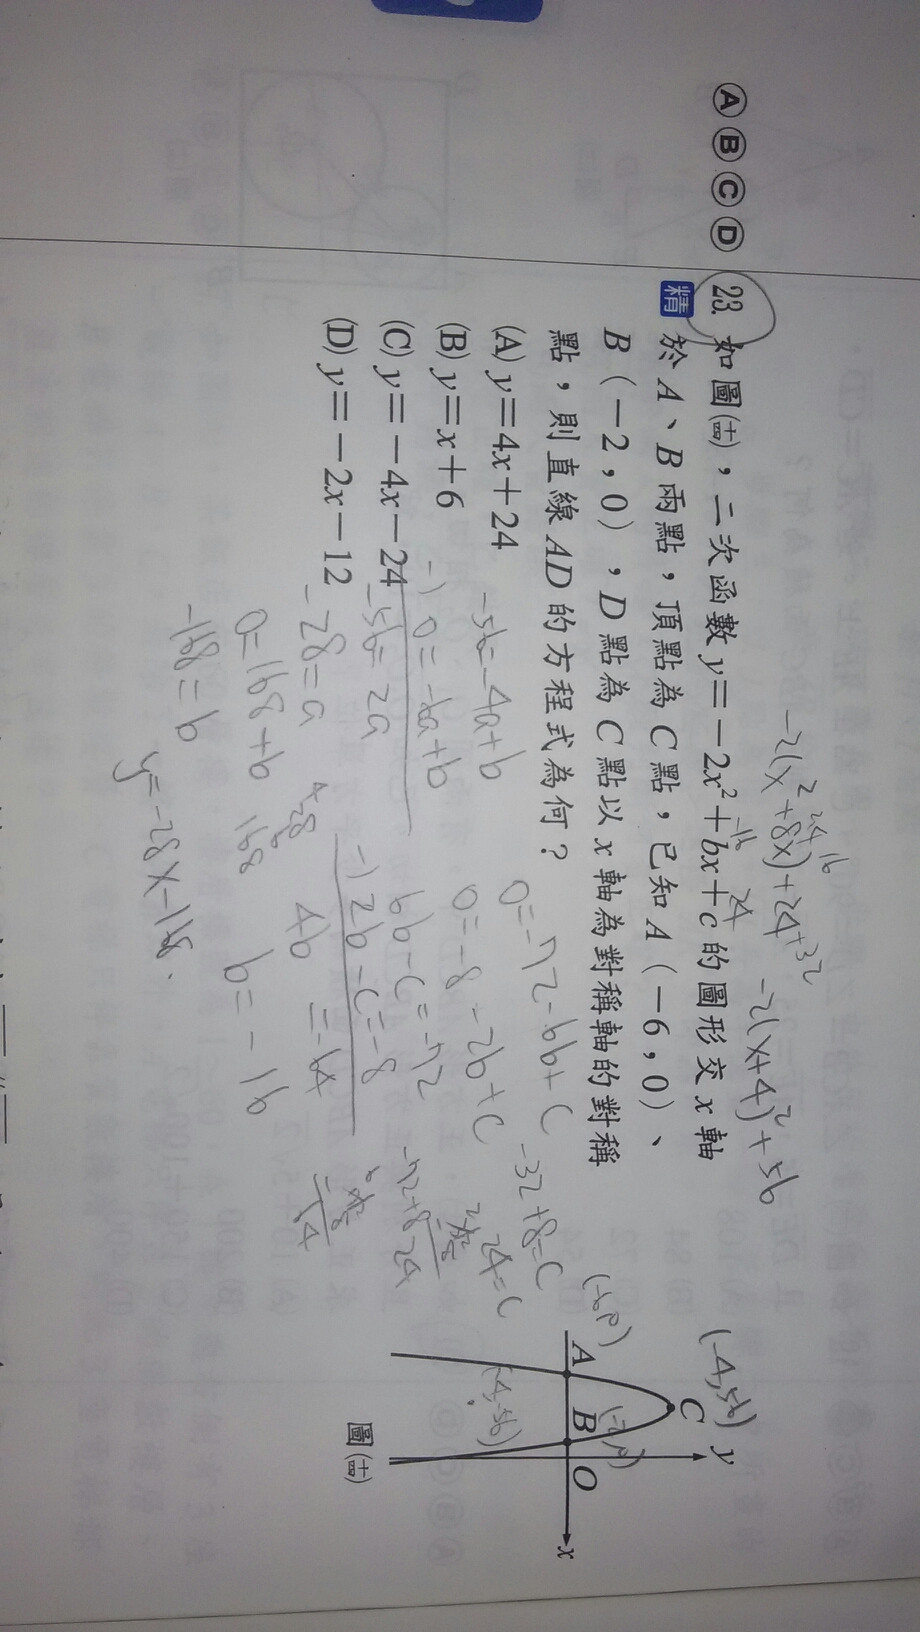 Ⓐ Ⓑ Ⓒ Ⓓ 23. 如圖(十四)，二次函數 y＝－2x²＋bx＋c 的圖形交 x 軸
精 於 A、B 兩點，頂點為 C 點，已知 A（－6，0）、
B（－2，0），D 點為 C 點以 x 軸為對稱軸的對稱
點，則直線 AD 的方程式為何？
(A) y＝4x＋24
(B) y＝x＋6
(C) y＝－4x－24
(D) y＝－2x－12
-2(x²+8x)+24+32
24 16
-2(x+4)²+56
-16
24
0=-72-6b+C
0=-8-2b+C
6b-C=-72
-) 2b-C=-8
4b =-64
b=-16
-32+8=C
24=C
-72+8
-56=-4a+b
-) 0=-6a+b
-56=2a
-28=a
0=168+b
-168=b
168
y=-28x-168.
(-4,56)
(-6,0)
(-2,0)
(-4,-56)
y
C
A
B
O
x
圖(十四)